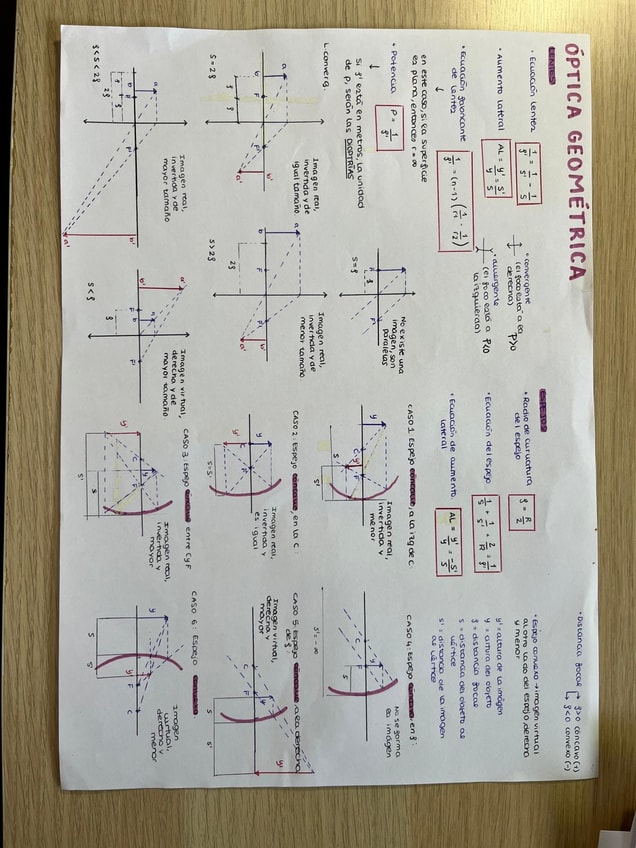 ÓPTICA GEOMÉTRICA
LENTES
• Ecuación lentes
1/f' = 1/s' - 1/s
• convergente
(el foco está a la
derecha) P>0
• Aumento lateral
AL = y'/y = s'/s
• divergente
(el foco está a
la izquierda) P<0
• Ecuación fabricante
de lentes
↓
1/f' = (n-1) (1/r1 - 1/r2)
en este caso, si la superficie
es plana, entonces r = ∞
• Potencia
↓
P = 1/f'
Si f' está en metros, la unidad
de P, serán las DIOPTRÍAS
L. converg.:
No existe una
imagen, son
paralelas
s = f
Imagen real,
invertida y de
igual tamaño
s = 2f
Imagen real,
invertida y de
menor tamaño
s > 2f
Imagen real,
invertida y de
mayor tamaño
f < s < 2f
Imagen virtual,
derecha y de
mayor tamaño
s < f
ESPEJOS
• Radio de curvatura
del espejo
f = R/2
• Ecuación del espejo
1/s + 1/s' = 2/R = 1/f
• Ecuación de aumento
lateral
AL = y'/y = -s'/s
• Distancia focal
f>0 cóncavo (+)
f<0 convexo (-)
• Espejo convexo → imagen virtual
al otro lado del espejo, derecha
y menor
y' = altura de la imagen
y = altura del objeto
f = distancia focal
s = distancia del objeto al
vértice
s' = distancia de la imagen
al vértice
CASO 1: Espejo cóncavo, a la izq de C.
Imagen real,
invertida y
menor
CASO 2: Espejo cóncavo, en la C:
Imagen real,
invertida y
es igual
s = s'
CASO 3: Espejo entre C y F
Imagen real,
invertida y
mayor
CASO 4: Espejo cóncavo, en f:
No se forma
la imagen
s' = -∞
CASO 5: Espejo cóncavo, a la derecha
de f:
Imagen virtual,
derecha y
mayor
CASO 6: Espejo
Imagen
virtual,
derecha y
menor